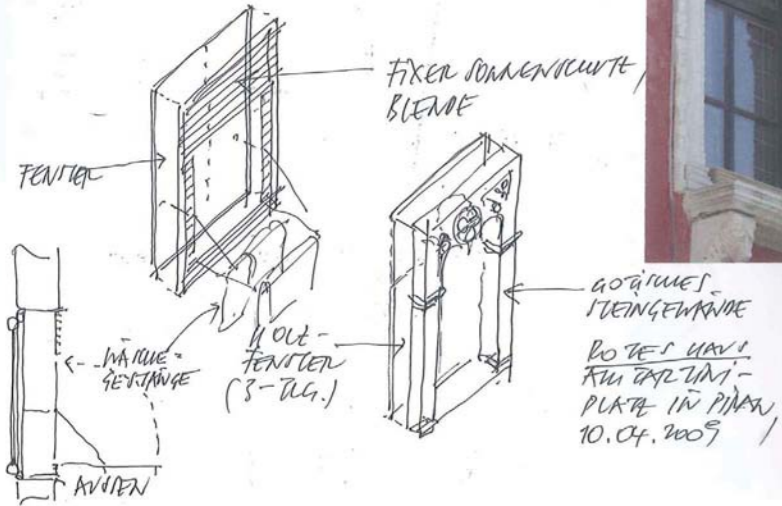 FIXER SONNENSCHUTZ,
BLENDE
FENSTER
WÄSCHE-
GESTÄNGE
HOLZ-
FENSTER
(3-TLG.)
GOTISCHES
STEINGEWÄNDE
ROTES HAUS
AM TARTINI-
PLATZ IN PIRAN,
10.04.2009
AUSSEN